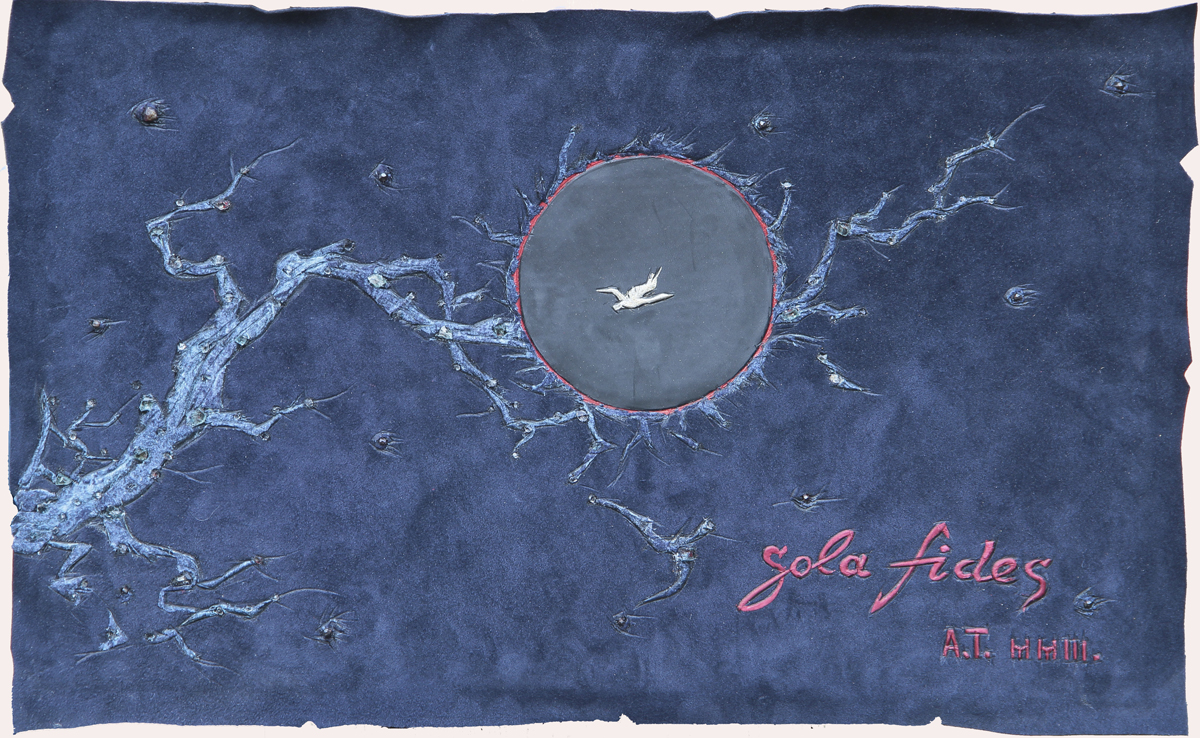 sola fides
A.T. MMIII.